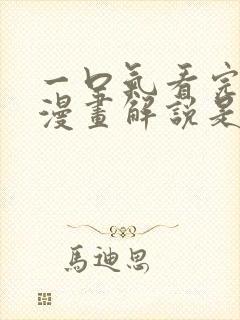 一口氣看完
漫畫解說是
馬迪思